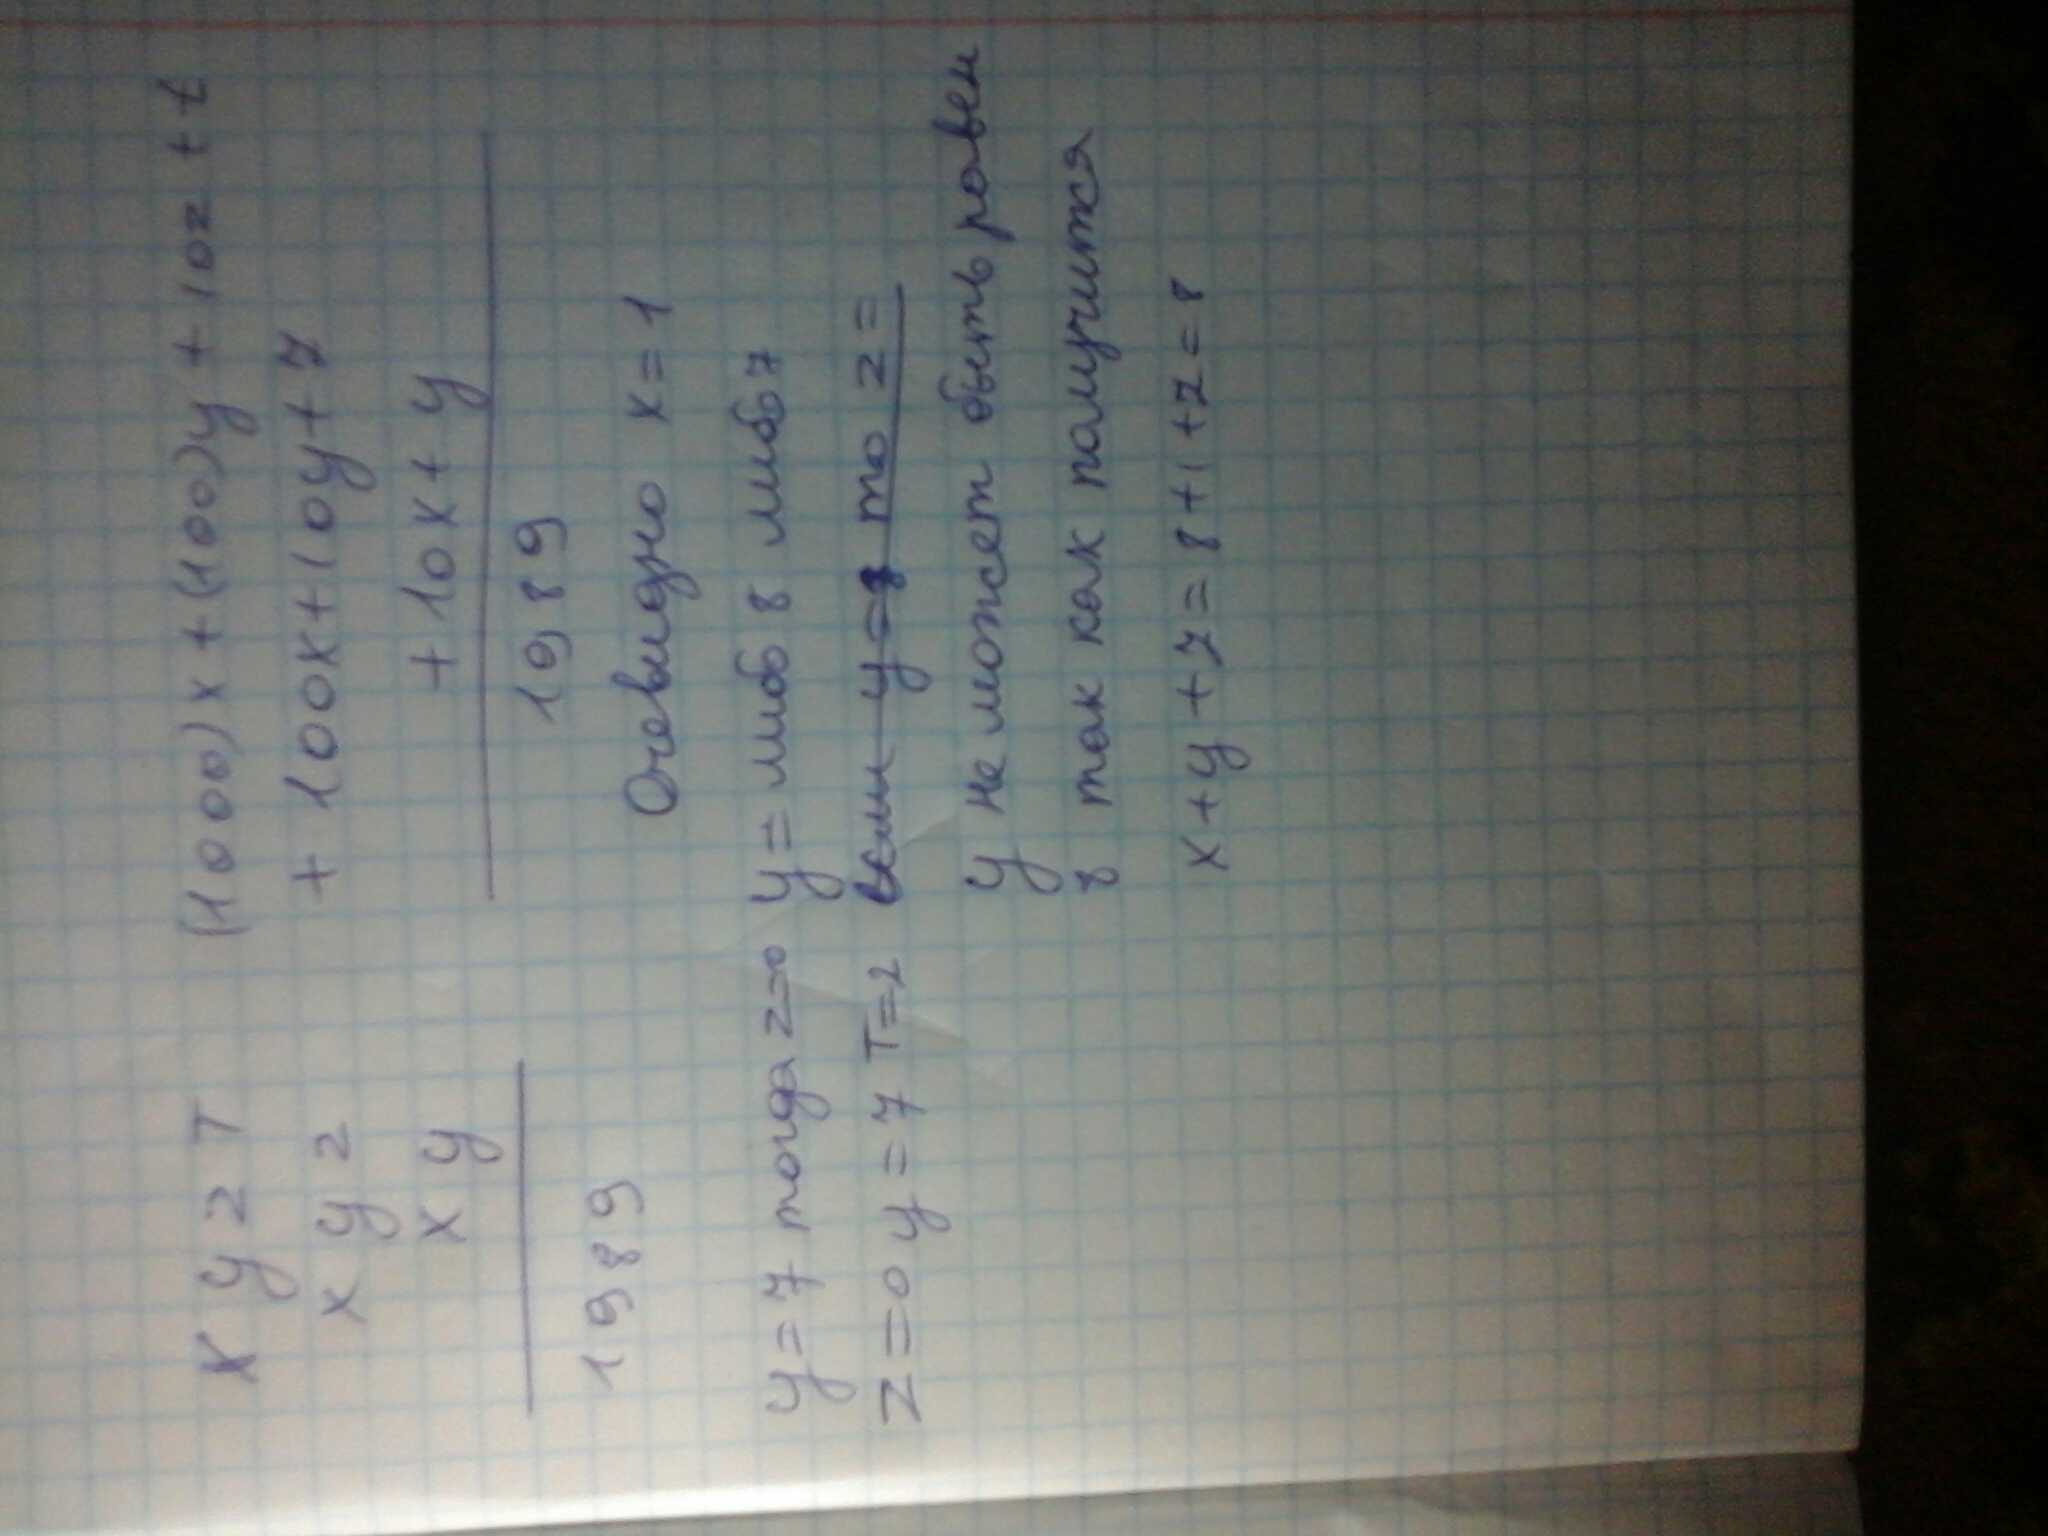 x y z T
x y z
x y
1989
(1000)x+(100)y+10z+t
+100x+10y+z
+10x+y
1989
Очевидно x=1
y=7 тогда z=0
z=0 y=7 T=2
y= либо 8 либо 7
если y=8 то z=
y не может быть равен
8 так как получится
x+y+z=8+1+z=8